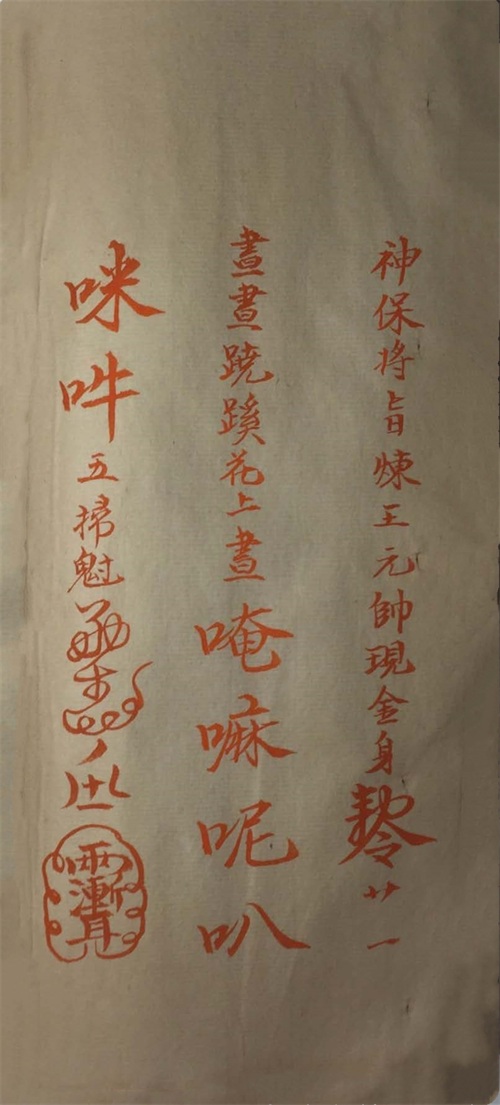 神保将旨煉王元帥現金身勅令廿一
晝晝蹺蹊花上晝唵嘛呢叭
咪吽五掃魁